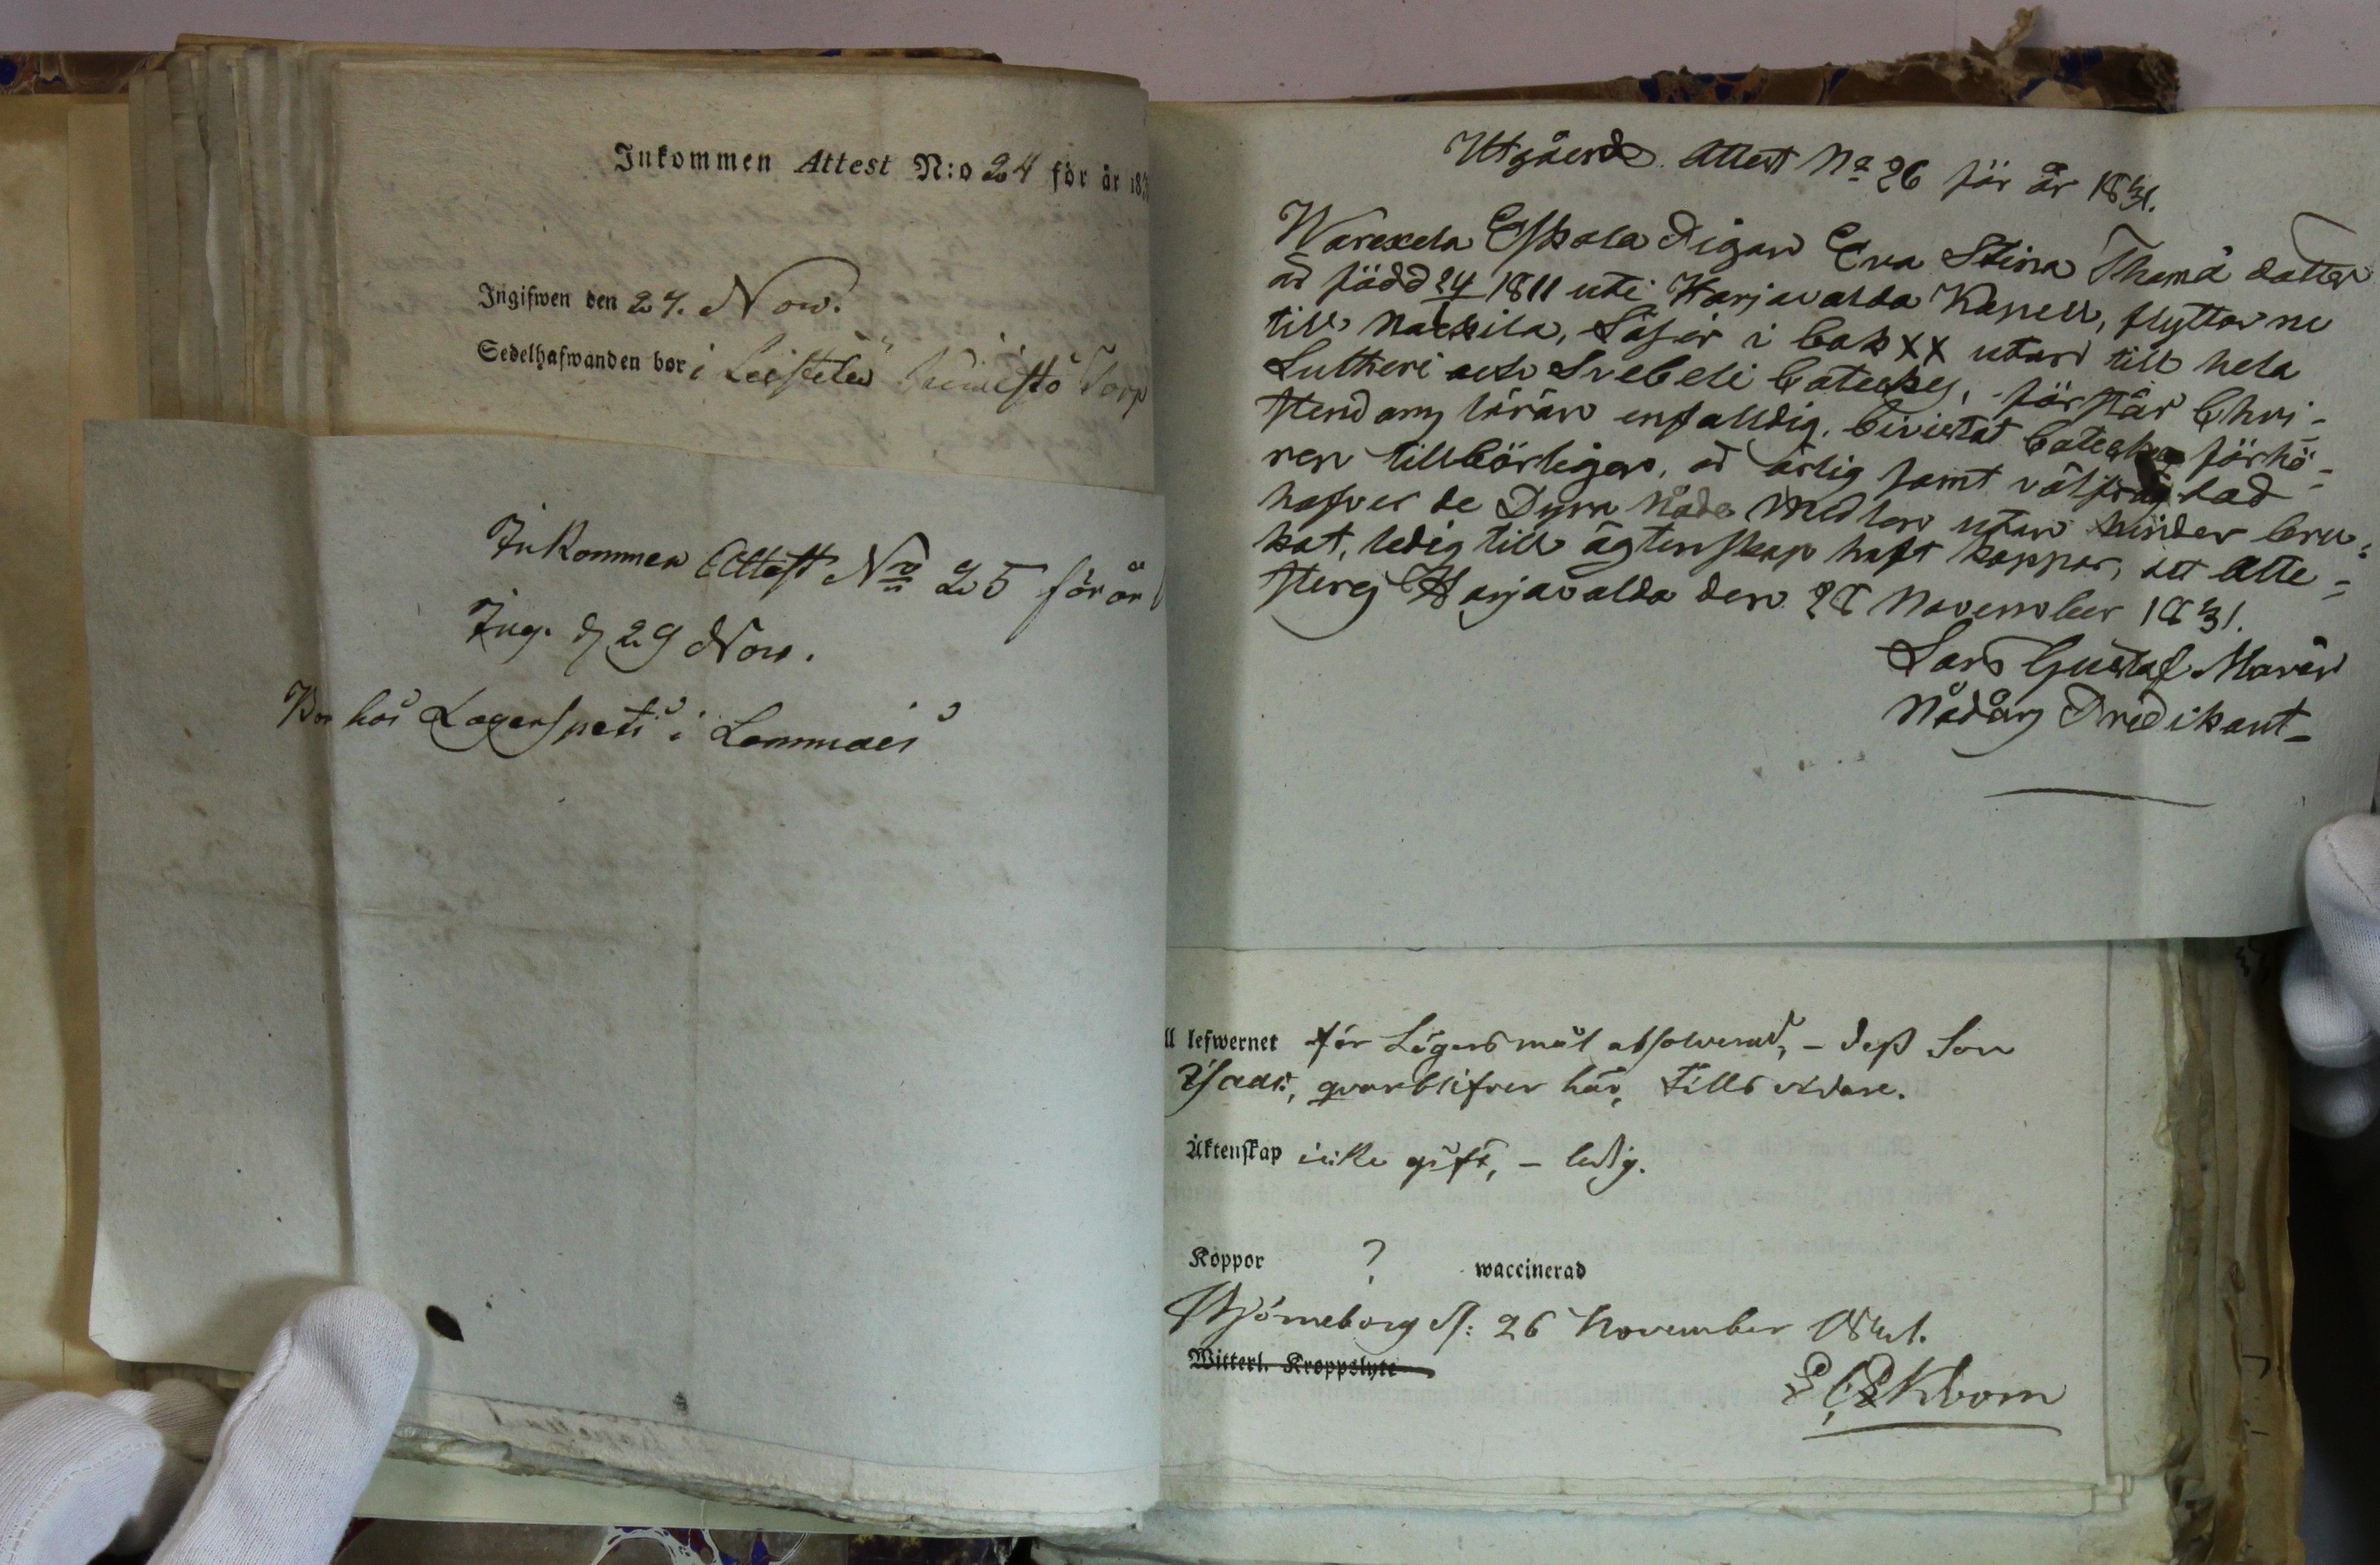 Inkommen Attest N:o 24 för år 183
Ingifwen den 24. Now.
Sedelhafwanden bor i Leistelä Torp
Inkommen Attest No 25 för år 1
Ing. d 29 Now.
Bor hos Lagerspets i
Utgående Attest No 26 för år 1831.
Warexela Eskola Pigan Eva Stina Thoma dotter
är född 24/ 1811 uti Harjavalda Kapell, flyttar nu
till Nackila, Läser i bok XX utan till hela
Lutheri och Svebeli Cateches, förstår Chri-
stendoms läran enfalldig, bivistat Catechs förhö-
ren tillbörligen, är ärlig samt väl frägdad
hafver de Dyra Nåde Medlen utan hinder bru-
kat, ledig till ägtenskap haft koppor, det Atte-
steras Harjavalda den 28 November 1831.
Lars Gustaf Marén
Nådårs Predikant
ll lefwernet för Lägersmål absolverad, - dess Son
Isaac, qvarblifver här, tills vidare.
Äktenskap icke gift, - ledig.
Koppor ? waccinerad
Björneborg d: 26 November 1831.
Witterl. Kroppslyte
Ekbom